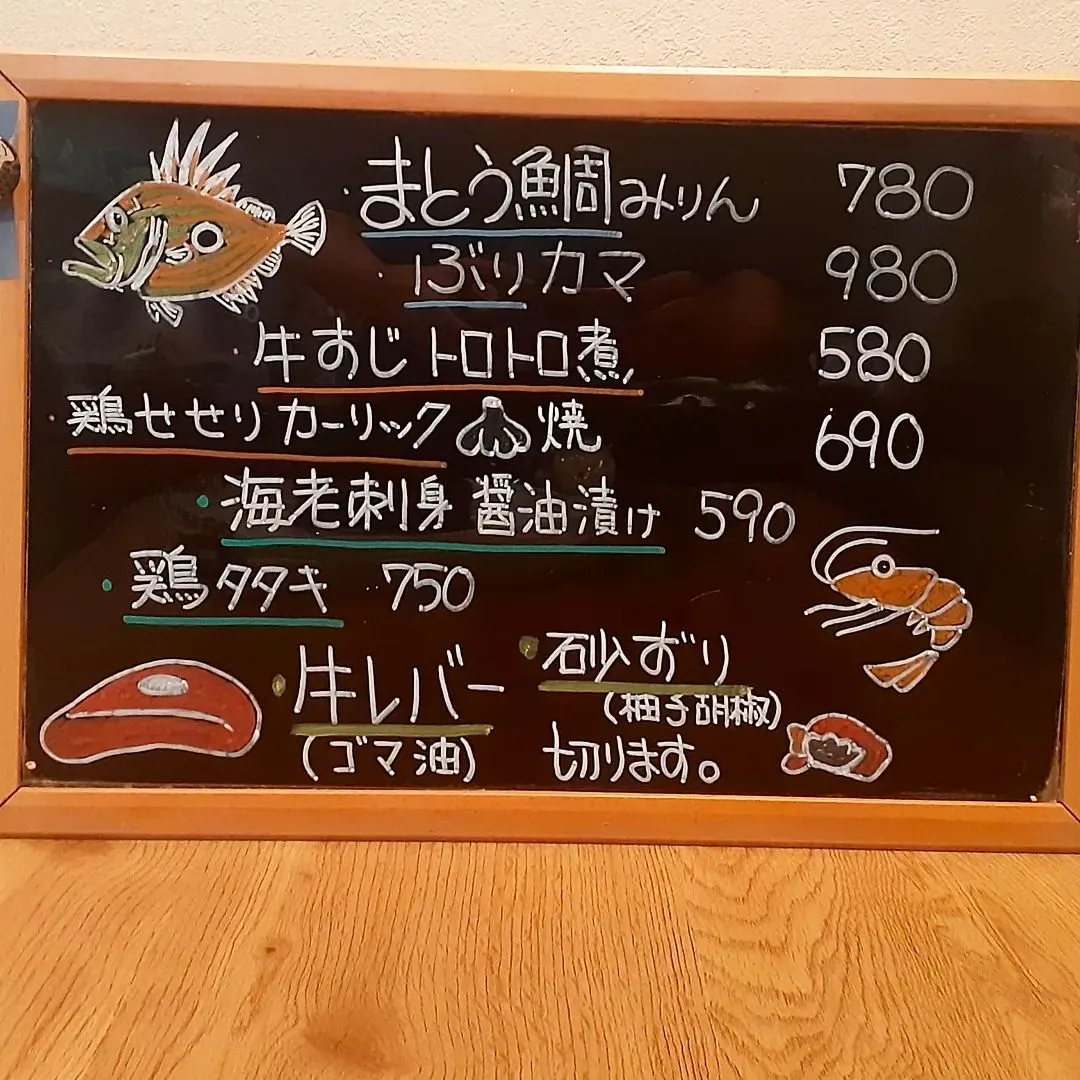 ・まとう鯛みりん 780
・ぶりカマ 980
・牛すじトロトロ煮 580
鶏せせりガーリック焼 690
・海老刺身 醤油漬け 590
・鶏タタキ 750
・牛レバー
(ゴマ油)
・砂ずり
(柚子胡椒)
切ります。